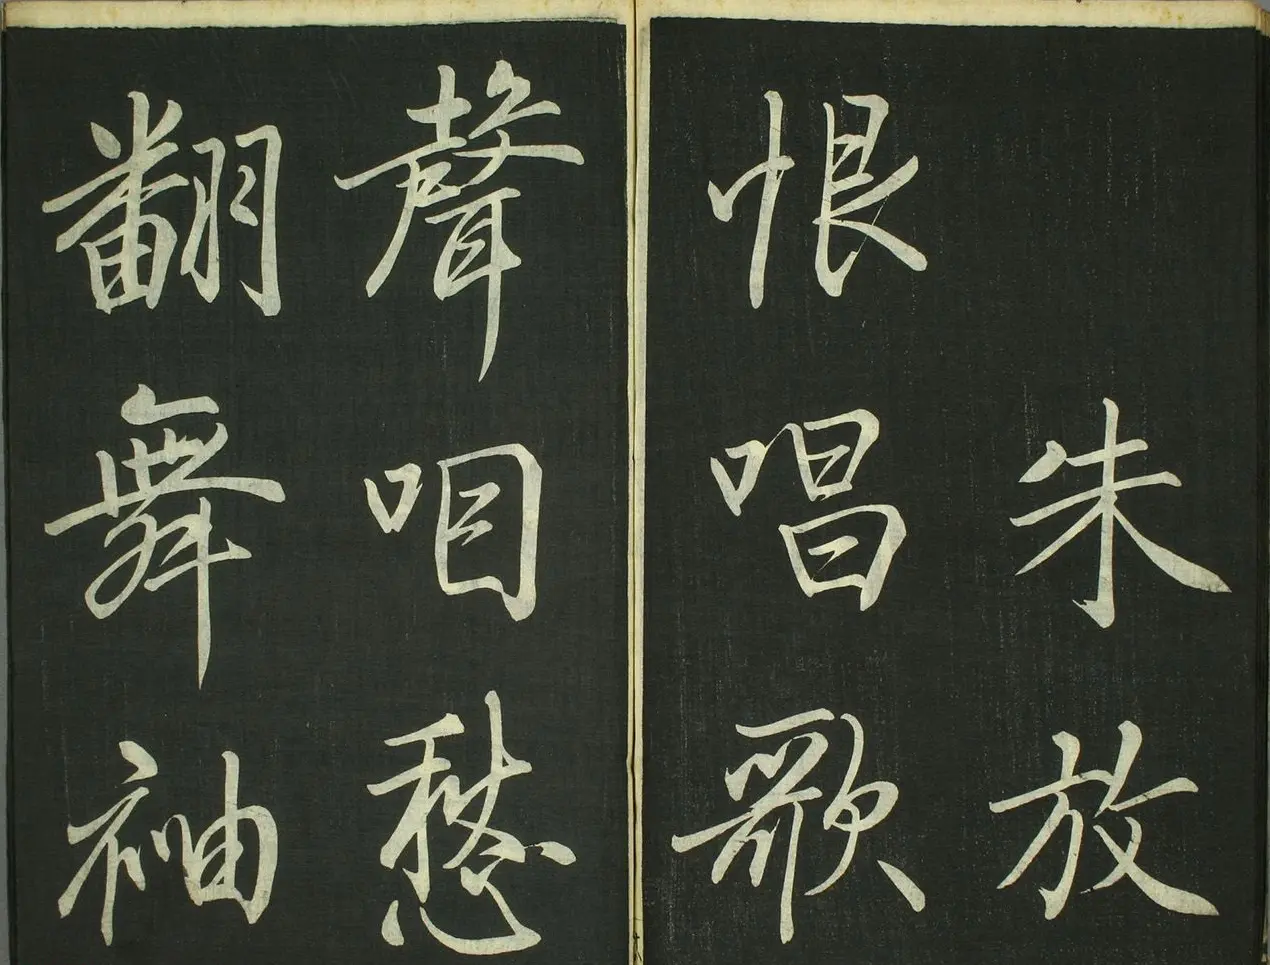 朱放
恨唱歌
聲咽愁
翻舞袖